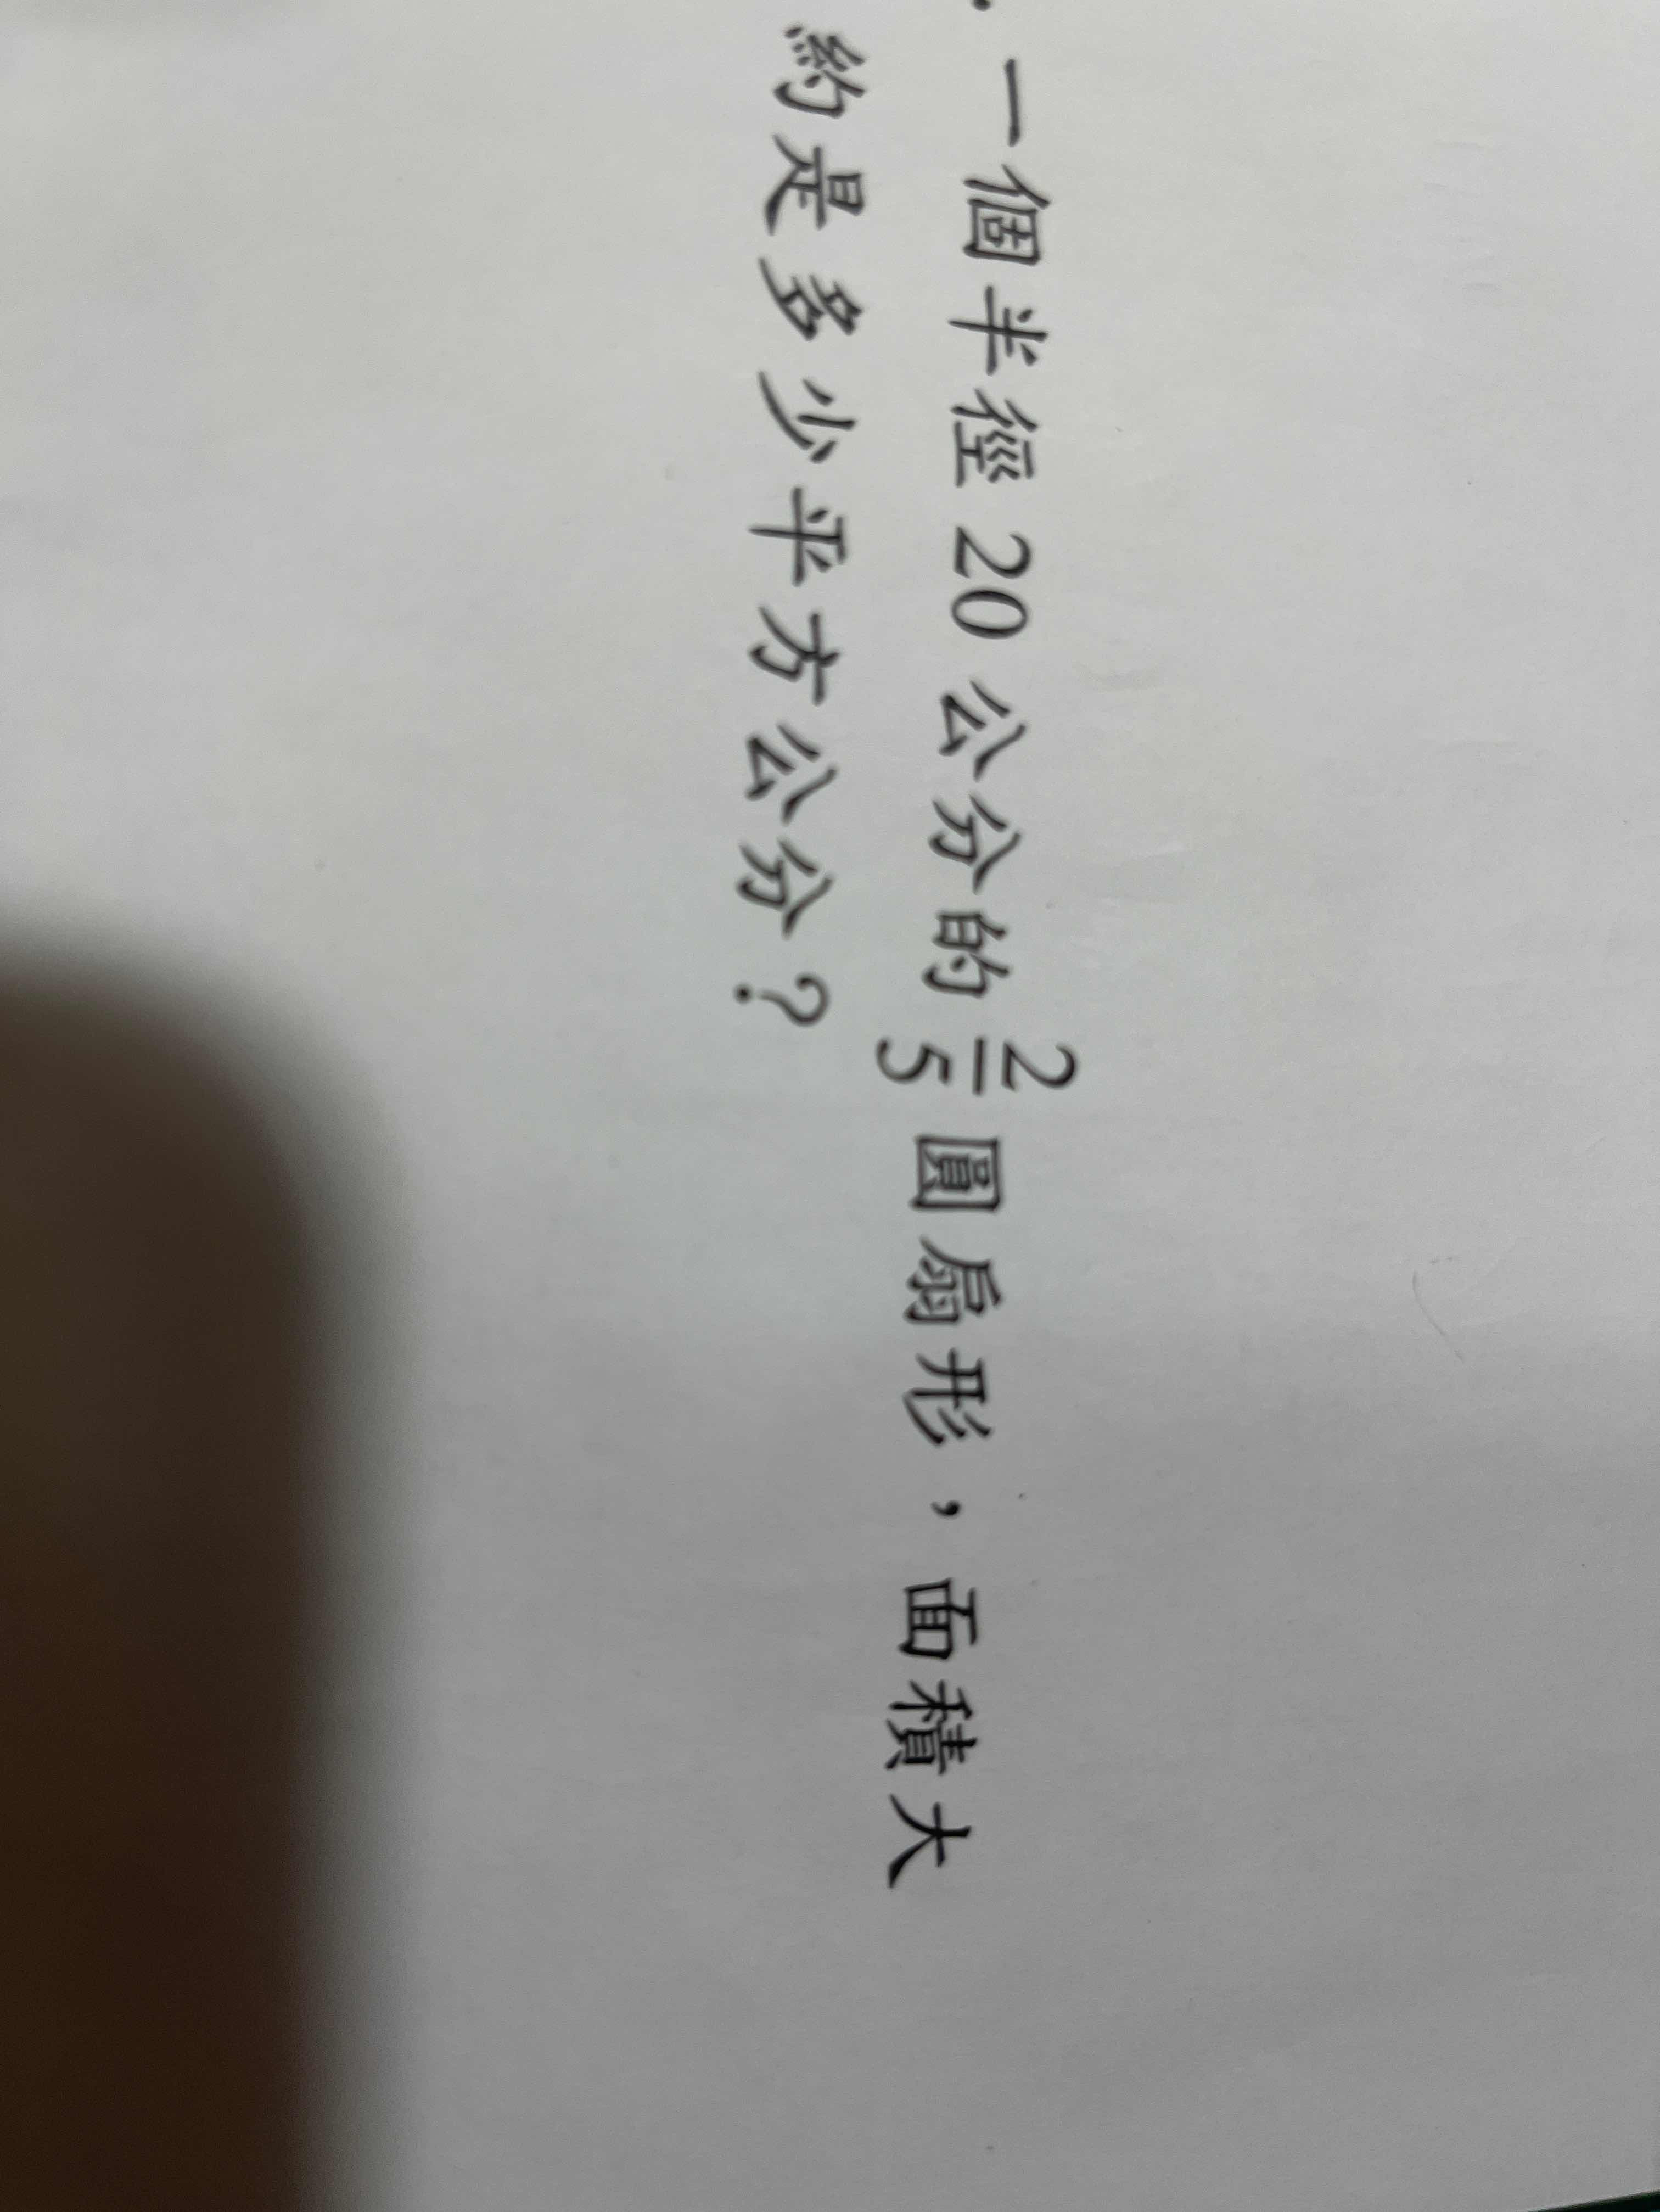 . 一個半徑 20 公分的 2/5 圓扇形，面積大
約是多少平方公分？